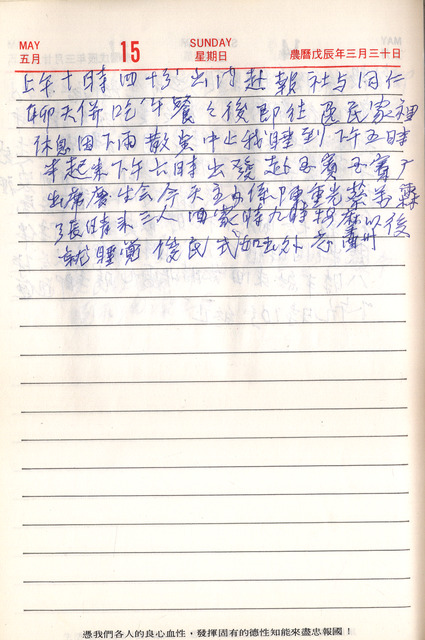 MAY 15 SUNDAY
五月 星期日 農曆戊辰年三月三十日
上午十時四十分出門赴報社与同仁
聊天併吃午餐之後即往民家裡
休息因下雨散會中止我睡到下午五時
半起來下午六時出發赴
出席慶生会今天主角係陳重光蔡
三人回家時九時按摩以後
就睡覺俊民
憑我們各人的良心血性，發揮固有的德性知能來盡忠報國！